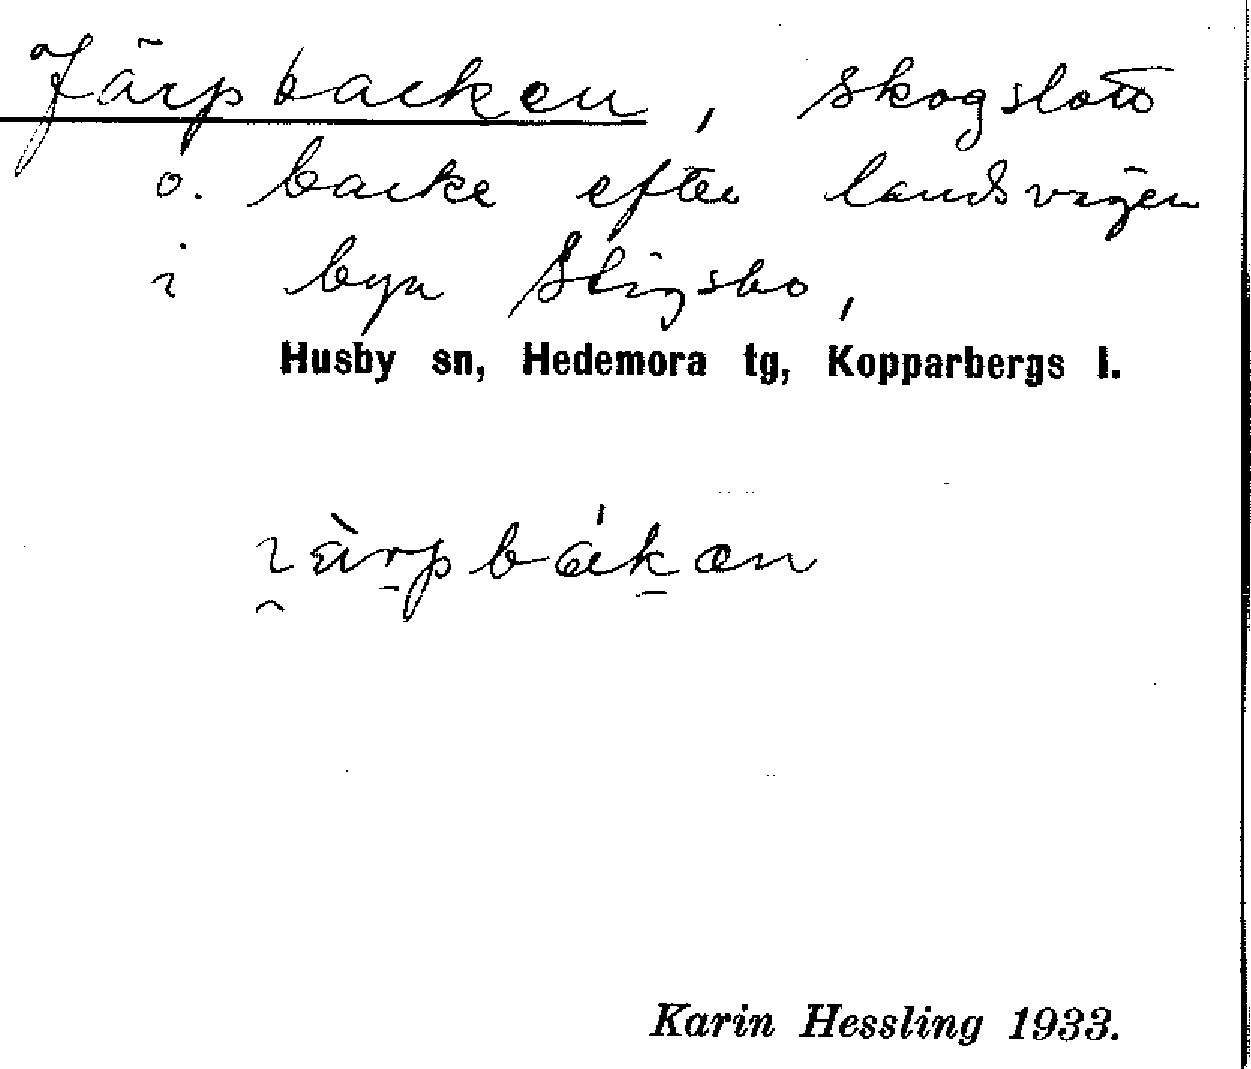 Järpbacken, skogslott
o. backe efter landsvägen
i byn Stigsbo,
Husby sn, Hedemora tg, Kopparbergs l.
Karin Hessling 1933.